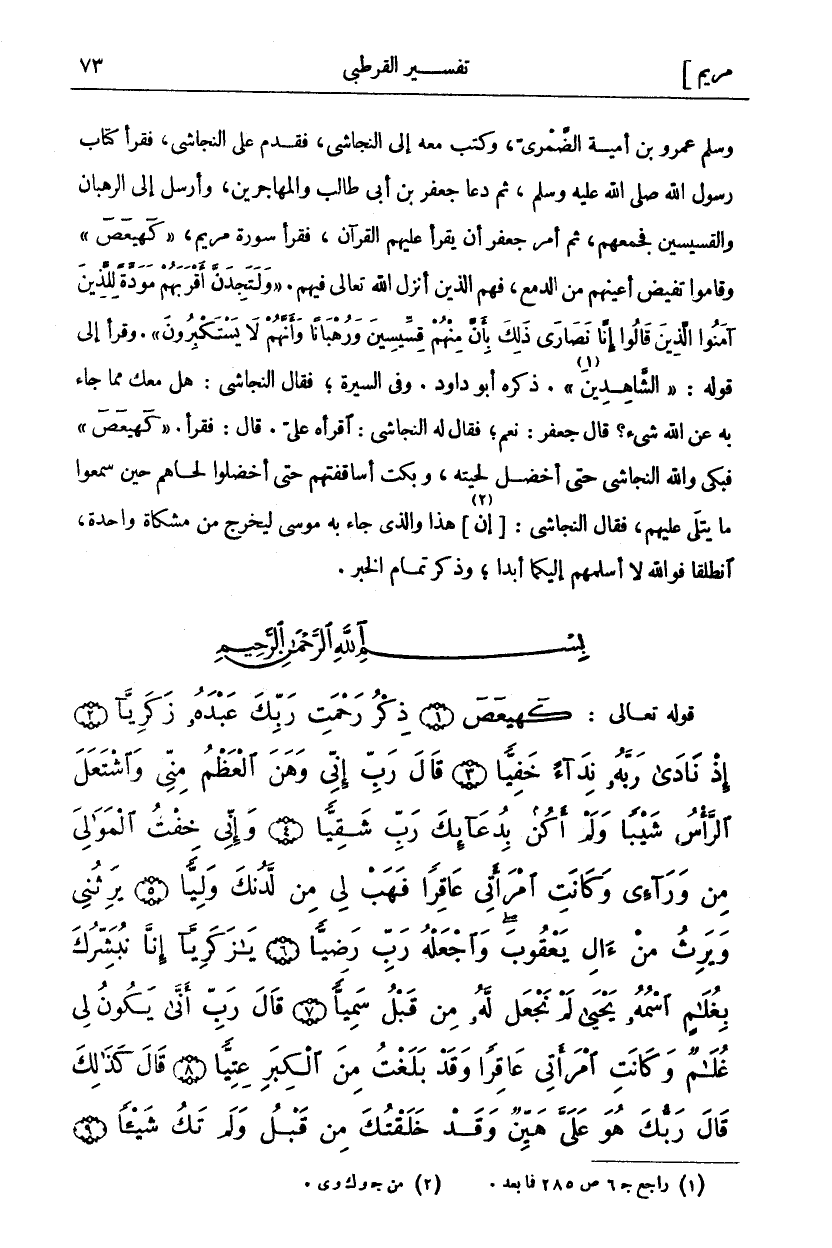 مريم ] تفسير القرطبى ٧٣
وسلم عمرو بن أمية الضَّمْرىّ، وكتب معه إلى النجاشى، فقدم على النجاشى، فقرأ كتاب
رسول الله صلى الله عليه وسلم ، ثم دعا جعفر بن أبى طالب والمهاجرين، وأرسل إلى الرهبان
والقسيسين فجمعهم، ثم أمر جعفر أن يقرأ عليهم القرآن ، فقرأ سورة مريم، « كَهيعَصَ »
وقاموا تفيض أعينهم من الدمع، فهم الذين أنزل الله تعالى فيهم. « وَلَتَجِدَنَّ أَقْرَبَهُمْ مَوَدَّةً لِلَّذِينَ
آمَنُوا الَّذِينَ قَالُوا إِنَّا نَصَارَى ذَلِكَ بِأَنَّ مِنْهُمْ قِسِّيسِينَ وَرُهْبَانًا وَأَنَّهُمْ لَا يَسْتَكْبِرُونَ ». وقرأ إلى
قوله : « الشَّاهِدِينَ (١) » . ذكره أبو داود . وفى السيرة ؛ فقال النجاشى : هل معك مما جاء
به عن الله شىء؟ قال جعفر : نعم؛ فقال له النجاشى : اقرأه علىّ . قال : فقرأ . « كَهيعَصَ »
فبكى والله النجاشى حتى أخضل لحيته ، وبكت أساقفتهم حتى أخضلوا لحاهم حين سمعوا
ما يتلى عليهم، فقال النجاشى : [ إن (٢) ] هذا والذى جاء به موسى ليخرج من مشكاة واحدة،
انطلقا فوالله لا أسلمهم إليكما أبدا ؛ وذكر تمام الخبر .
بِسْمِ ٱللَّهِ ٱلرَّحْمَٰنِ ٱلرَّحِيمِ
قوله تعالى : كَهيعَصَ ﴿١﴾ ذِكْرُ رَحْمَتِ رَبِّكَ عَبْدَهُۥ زَكَرِيَّآ ﴿٢﴾
إِذْ نَادَىٰ رَبَّهُۥ نِدَآءً خَفِيًّا ﴿٣﴾ قَالَ رَبِّ إِنِّى وَهَنَ ٱلْعَظْمُ مِنِّى وَٱشْتَعَلَ
ٱلرَّأْسُ شَيْبًا وَلَمْ أَكُنۢ بِدُعَآئِكَ رَبِّ شَقِيًّا ﴿٤﴾ وَإِنِّى خِفْتُ ٱلْمَوَٰلِىَ
مِن وَرَآءِى وَكَانَتِ ٱمْرَأَتِى عَاقِرًا فَهَبْ لِى مِن لَّدُنكَ وَلِيًّا ﴿٥﴾ يَرِثُنِى
وَيَرِثُ مِنْ ءَالِ يَعْقُوبَ ۖ وَٱجْعَلْهُ رَبِّ رَضِيًّا ﴿٦﴾ يَٰزَكَرِيَّآ إِنَّا نُبَشِّرُكَ
بِغُلَٰمٍ ٱسْمُهُۥ يَحْيَىٰ لَمْ نَجْعَل لَّهُۥ مِن قَبْلُ سَمِيًّا ﴿٧﴾ قَالَ رَبِّ أَنَّىٰ يَكُونُ لِى
غُلَٰمٌ وَكَانَتِ ٱمْرَأَتِى عَاقِرًا وَقَدْ بَلَغْتُ مِنَ ٱلْكِبَرِ عِتِيًّا ﴿٨﴾ قَالَ كَذَٰلِكَ
قَالَ رَبُّكَ هُوَ عَلَىَّ هَيِّنٌ وَقَدْ خَلَقْتُكَ مِن قَبْلُ وَلَمْ تَكُ شَيْـًٔا ﴿٩﴾
(١) راجع ج ٦ ص ٢٨٥ فما بعد . (٢) من ج و ك و ى .